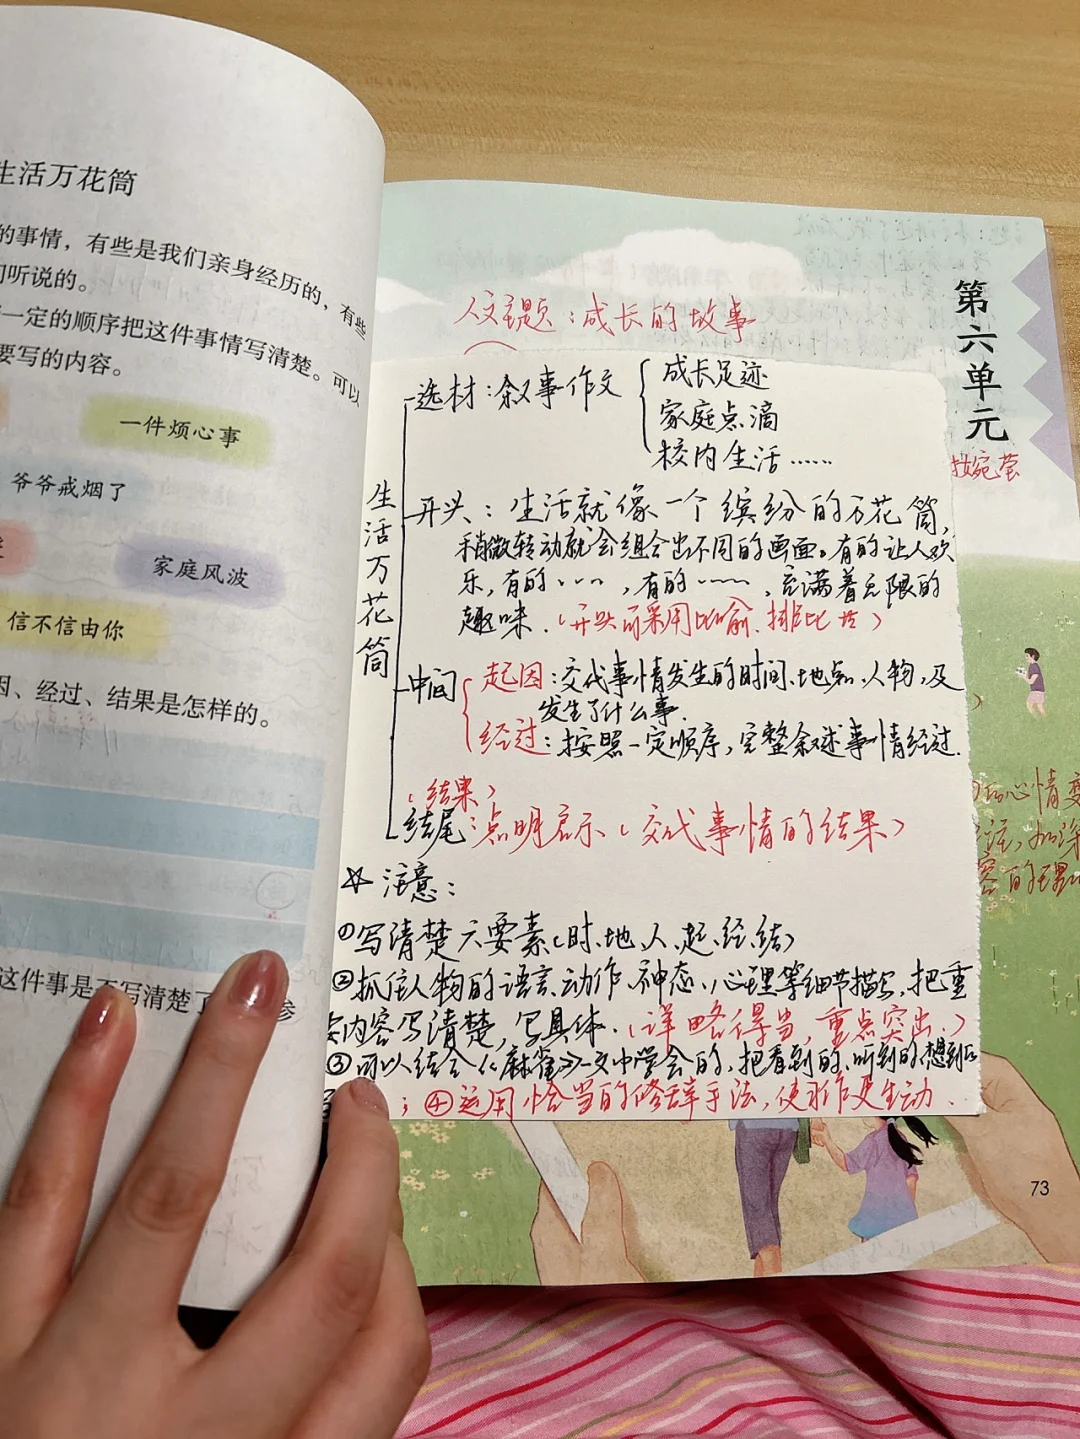 生活万花筒
的事情，有些是我们亲身经历的，有些
们听说的。
一定的顺序把这件事情写清楚。可以
要写的内容。
一件烦心事
爷爷戒烟了
家庭风波
信不信由你
因、经过、结果是怎样的。
这件事是不写清楚了
参
第六单元
人文主题：成长的故事
生活万花筒
选材：叙事作文
成长足迹
家庭点滴
校内生活……
开头：生活就像一个缤纷的万花筒，
稍微转动就会组合出不同的画面。有的让人欢
乐，有的……，有的……，充满着无限的
趣味.（开头可采用比喻、排比等）
中间
起因：交代事情发生的时间、地点、人物，及
发生了什么事.
经过：按照一定顺序，完整叙述事情经过.
（结果）
结尾：点明启示（交代事情的结果）
☆注意：
①写清楚六要素（时、地、人、起、经、结）
②抓住人物的语言、动作、神态、心理等细节描写，把重
要内容写清楚，写具体.（详略得当，重点突出.）
③可以结合《麻雀》一文中学会的，把看到的、听到的、想到的
；④运用恰当的修辞手法，使习作更生动.
心情变
加深
73